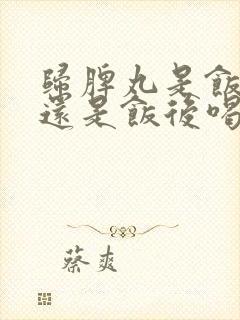 歸脾丸是飯
還是飯後喝
蔡爽